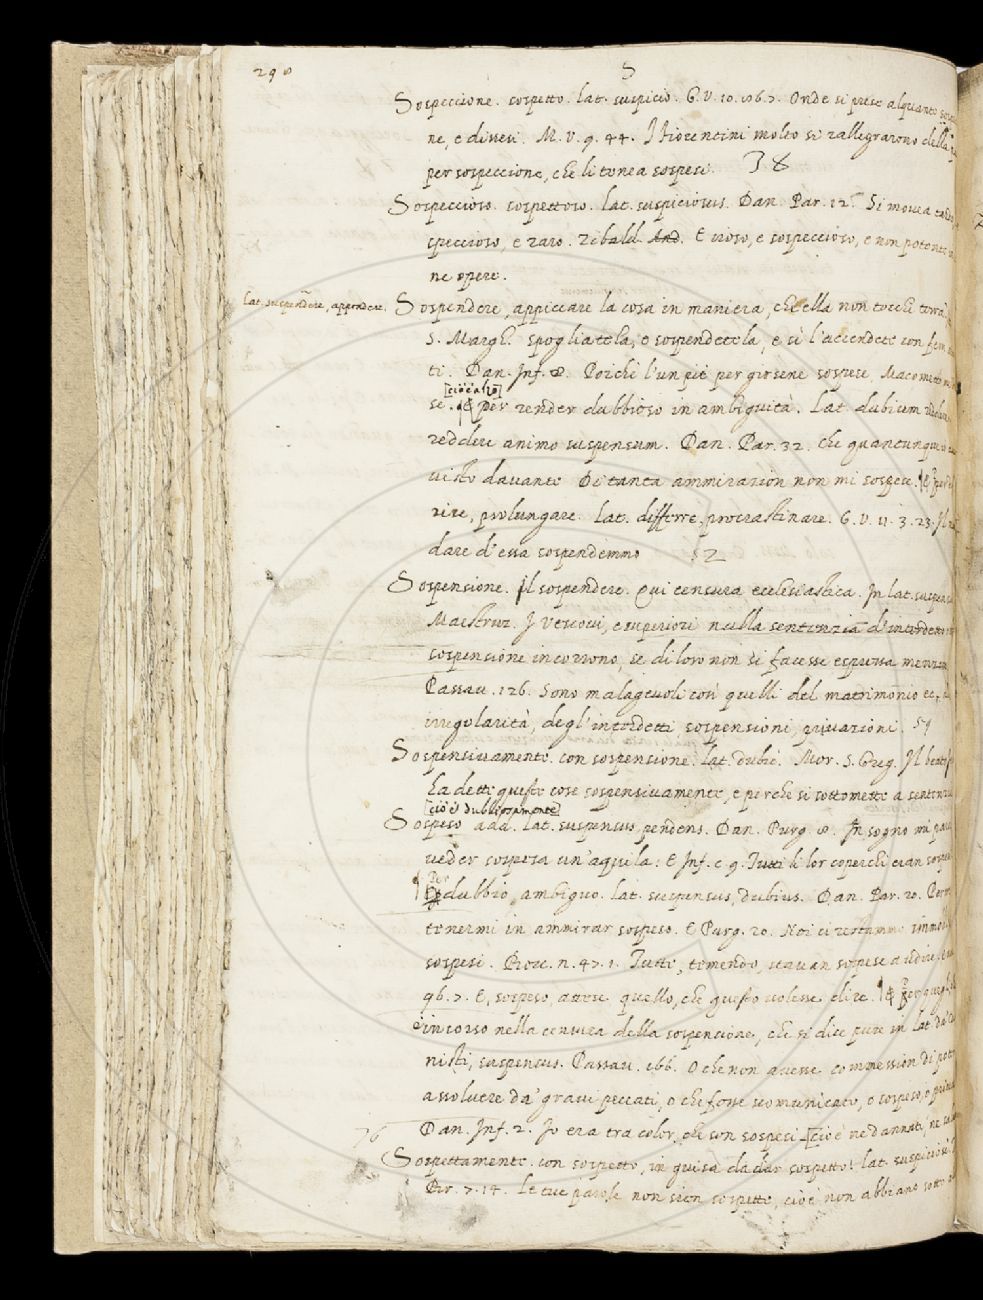 298
S
Sospeccione. sospetto. lat. suspicio. G. V. 10. 106. 7. Onde si prese alquanto
ne, e dissesi. M. V. 9. 44. I Fiorentini molto si rallegrarono della
per sospeccione, che li tenea sospesi. 38
Sospeccioso. sospettoso. lat. suspiciosus. Dan. Par. 12. Si movea
speccioso, e raro. Ribald. And. E cioso, e sospeccioso, e non potente
ne opere.
lat. suspendere, appendere.
Sospendere, appiccare la cosa in maniera, ch'ella non tocchi terra
S. Margh. spogliatela, e sospendetela, e sì l'accendete con
ti. Dan. Inf. 28. Poichè l'un piè per girsene sospese, Macometto
[cioè alzò]
se. ¶ E per render dubbioso in ambiguità. Lat. dubium
reddere animo suspensum. Dan. Par. 32. Che quantunque
visto davante Di tanta ammirazion non mi sospese. ¶ E per
rire, prolungare. lat. differre, procrastinare. G. V. 11. 3. 23. Il
dare d'essa sospendemmo 52
Sospensione. Il sospendere. Qui censura ecclesiastica. In lat. suspens
Maestruz. I Vescovi, e superiori nulla sentenzia d'interdetto
sospensione incorrono, se di loro non si facesse espressa menzion
Passav. 126. Sono malagevoli così quelli del matrimonio ec.
irregolarità, degl'interdetti, sospensioni, privazioni. 59
Sospensivamente. con sospensione. lat. dubiè. Mor. S. Greg. Il beato
ha dette queste cose sospensivamente, e perche si sottomette a sentenzia
[cioè dubbiosamente]
Sospeso add. lat. suspensus, pendens. Dan. Purg. 9. In sogno mi parea
veder sospesa un'aquila. E Inf. c. 9. Tutti li lor coperchi eran sospesi
¶ Per
dubbio, ambiguo. lat. suspensus, dubius. Dan. Par. 20. Per
tenermi in ammirar sospeso. E Purg. 20. Noi ci restammo immobili
sospesi. Bocc. n. 47. 1. Tutte, temendo, stavan sospese a udire
96. 7. E, sospeso, attese quello, che questo volesse dire. ¶ E Per quegli
è incorso nella censura della sospensione, che si dice pure in lat. da'
nisti, suspensus. Passav. 166. O che non avesse commession di
assolvere da' gravi peccati, o che fosse scomunicato, o sospeso, o
76
Dan. Inf. 2. Io era tra color, che son sospesi. [cioè ne dannati, ne
Sospettamente. con sospetto, in guisa da dar sospetto. lat. suspiciosè
Bir. 7. 14. Le tue parole non sien sospette, cioè non abbiano sotto